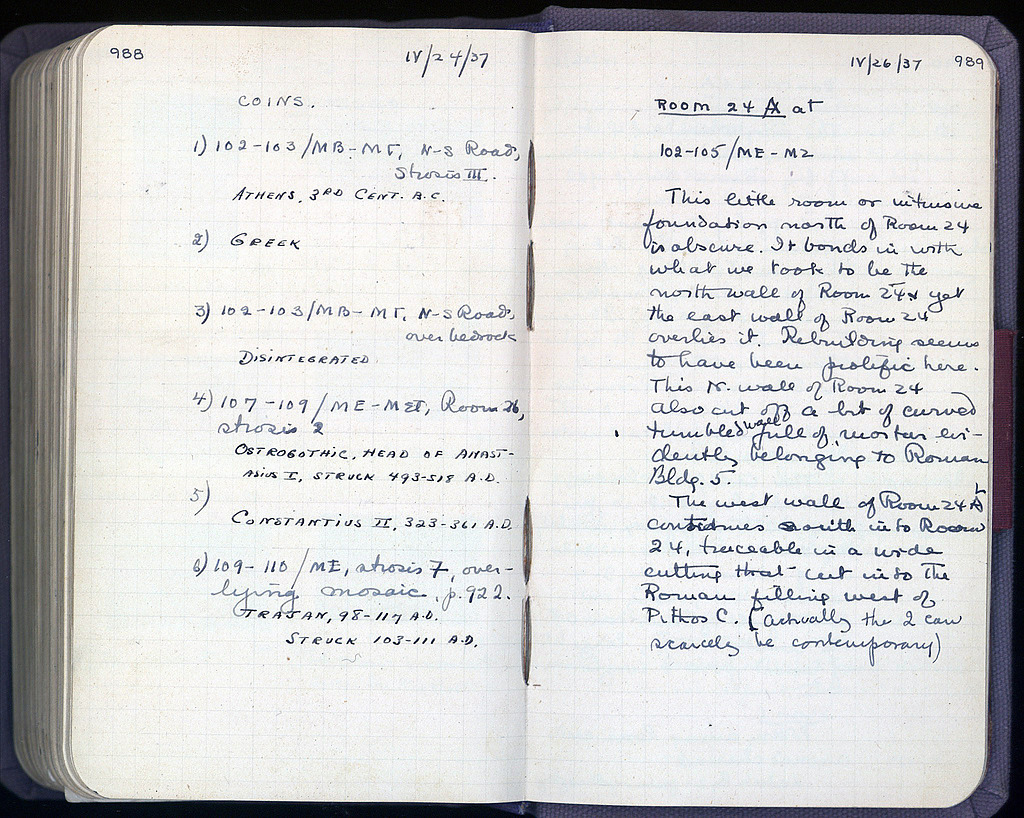 988
IV/24/37
COINS.
1) 102-103/MB-MΓ, N-S Road,
Strosis III.
ATHENS, 3RD CENT. B.C.
2) GREEK
3) 102-103/MB-MΓ, N-S Road,
over bedrock
DISINTEGRATED
4) 107-109/ME-MΣΤ, Room 26,
strosis 2
OSTROGOTHIC, HEAD OF ANAST-
ASIUS I, STRUCK 493-518 A.D.
5)
CONSTANTIUS II, 323-361 A.D.
6) 109-110/ME, strosis 7, over-
lying mosaic, p. 922.
TRAJAN, 98-117 A.D.
STRUCK 103-111 A.D.
IV/26/37
989
ROOM 24 A at
102-105/ME-MZ
This little room or intrusive
foundation north of Room 24
is obscure. It bonds in with
what we took to be the
north wall of Room 24 yet
the east wall of Room 24
overlies it. Rebuilding seems
to have been prolific here.
This N. wall of Room 24
also cut off a bit of curved
tumbled wall full of mortar evi-
dently belonging to Roman
Bldg. 5.
The west wall of Room 24
continues south into Room
24, traceable in a wide
cutting that cut into the
Roman filling west of
Pithos C. (actually the 2 can
scarcely be contemporary)